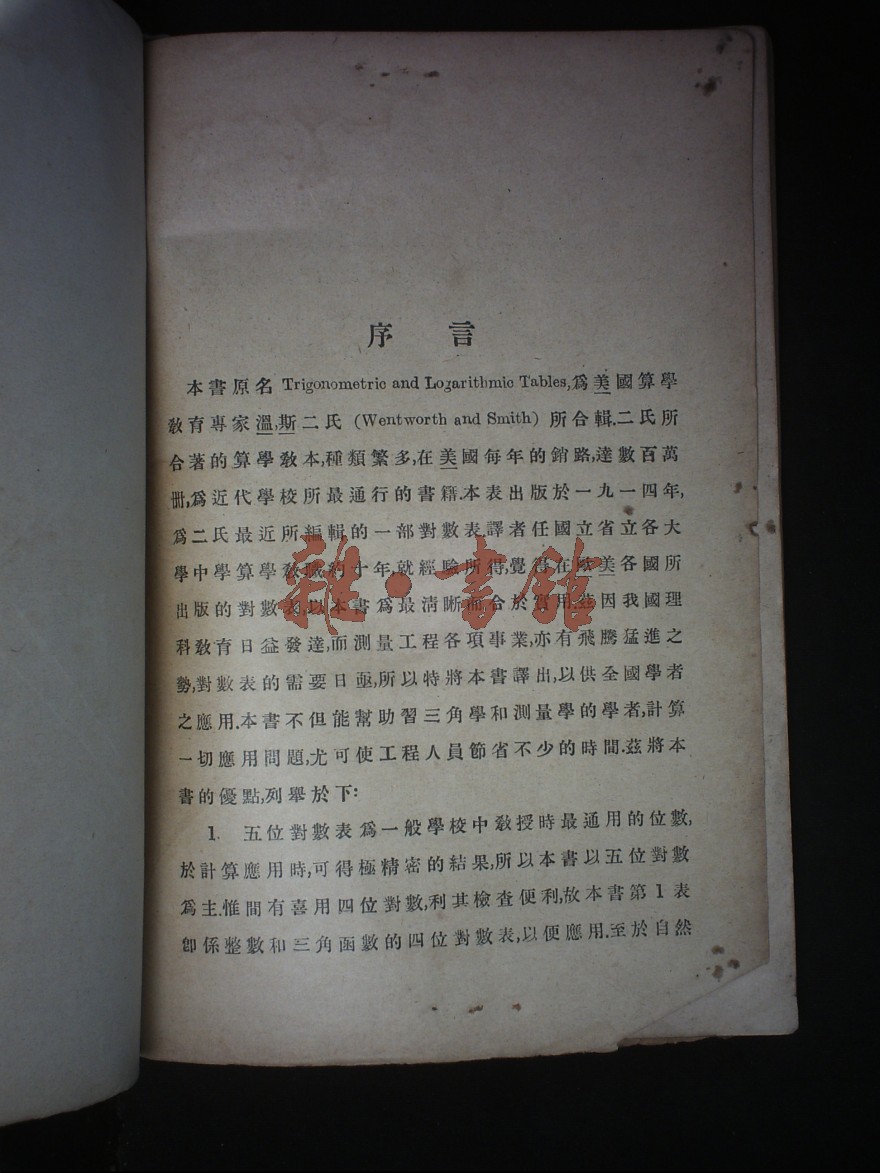 序言
本書原名 Trigonometric and Logarithmic Tables,爲美國算學
敎育專家溫,斯二氏 (Wentworth and Smith) 所合輯.二氏所
合著的算學敎本,種類繁多,在美國每年的銷路,達數百萬
冊,爲近代學校所最通行的書籍.本表出版於一九一四年,
爲二氏最近所編輯的一部對數表.譯者任國立省立各大
學中學算學敎職約十年,就經驗所得,覺得在歐美各國所
出版的對數表,以本書爲最淸晰而合於實用.茲因我國理
科敎育日益發達,而測量工程各項事業,亦有飛騰猛進之
勢,對數表的需要日亟,所以特將本書譯出,以供全國學者
之應用.本書不但能幫助習三角學和測量學的學者,計算
一切應用問題,尤可使工程人員節省不少的時間.茲將本
書的優點,列舉於下:
1. 五位對數表爲一般學校中敎授時最通用的位數,
於計算應用時,可得極精密的結果,所以本書以五位對數
爲主.惟間有喜用四位對數,利其檢查便利,故本書第1表
卽係整數和三角函數的四位對數表,以便應用.至於自然
雜·書館